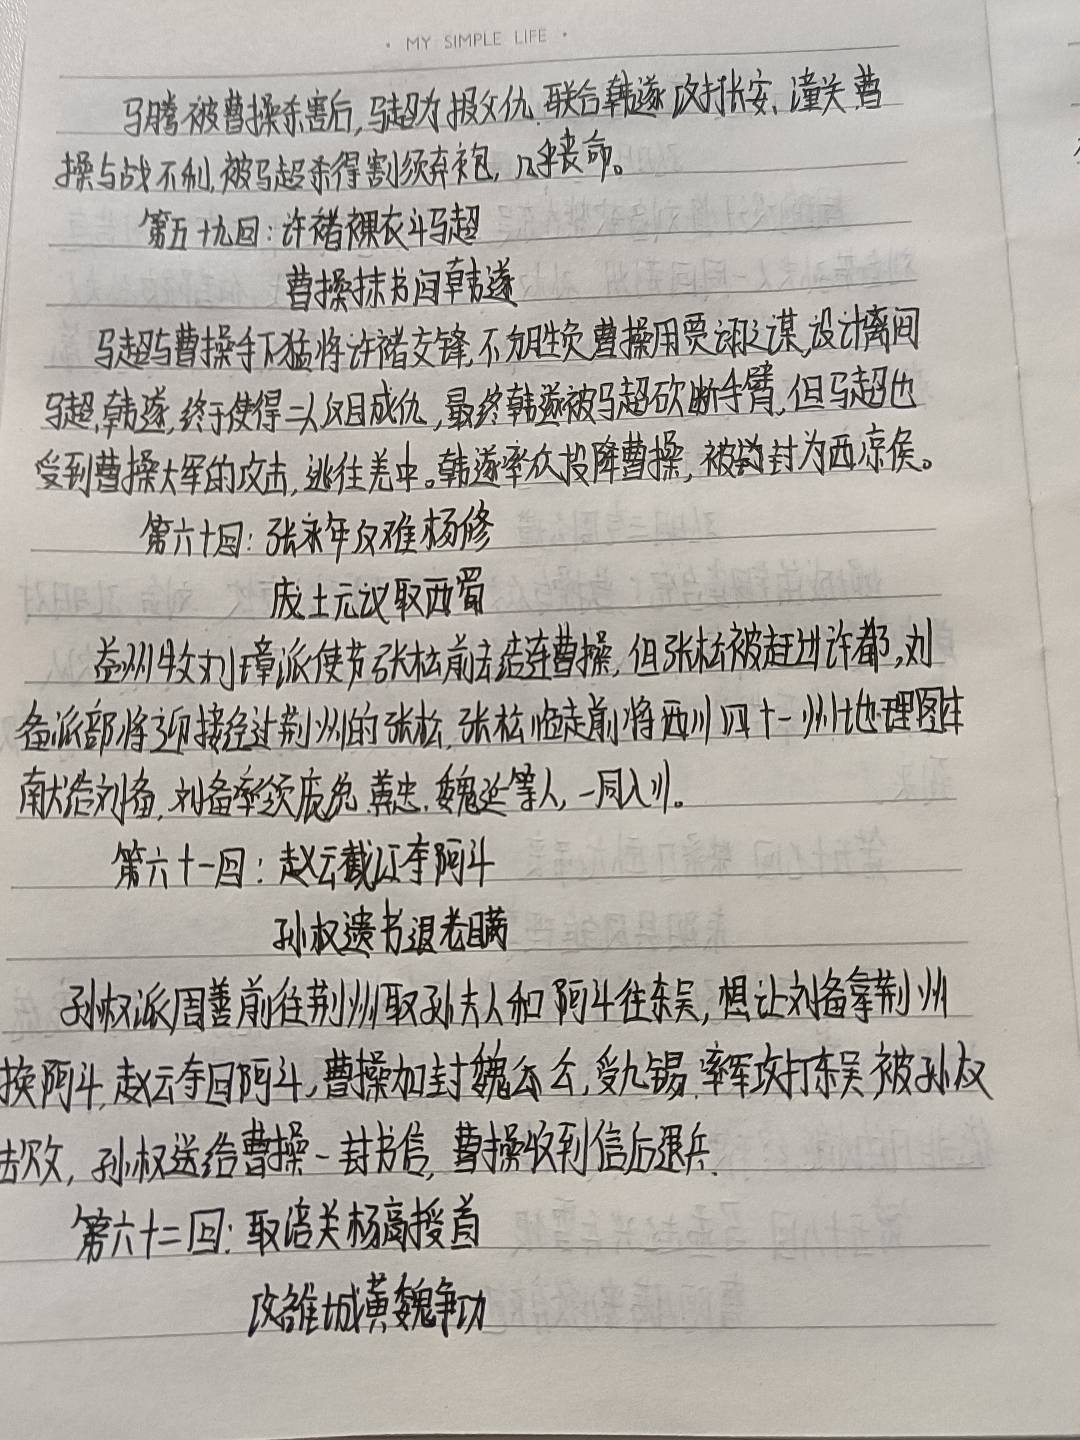 · MY SIMPLE LIFE ·
马腾被曹操杀害后，马超为报父仇，联合韩遂攻打长安、潼关曹
操与战不利，被马超杀得割须弃袍，几乎丧命。
第五十九回：许褚裸衣斗马超
曹操抹书间韩遂
马超与曹操手下猛将许褚交锋，不分胜负曹操用贾诩之谋，设计离间
马超，韩遂，终于使得二人反目成仇，最终韩遂被马超砍断手臂，但马超也
受到曹操大军的攻击，逃往羌中。韩遂率众投降曹操，被封为西凉侯。
第六十回：张永年反难杨修
庞士元议取西蜀
益州牧刘璋派使节张松前去结连曹操，但张松被赶出许都，刘
备派部将迎接经过荆州的张松，张松临走前将西川四十一州地理图本
献给刘备，刘备率领庞统、黄忠、魏延等人，一同入川。
第六十一回：赵云截江夺阿斗
孙权遗书退老瞒
孙权派周善前往荆州取孙夫人和阿斗往东吴，想让刘备拿荆州
换阿斗，赵云夺回阿斗，曹操加封魏公，受九锡，率军攻打东吴，被孙权
击败，孙权送给曹操一封书信，曹操收到信后退兵.
第六十二回：取涪关杨高授首
攻雒城黄魏争功